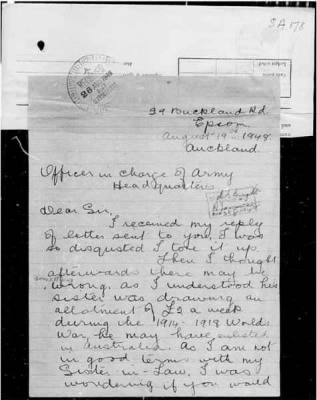 SA 178
29 Buckland Rd.
Epsom
August 19th 1948.
Auckland
Officer in charge of Army
Headquarters
Dear Sir,
I received my reply
of letter sent to you, I was
so disgusted I tore it up.
Then I thought
afterwards there may be
wrong, as I understood his
sister was drawing an
allotment of £2 a week
during the 1914-1918 World
War, he may have enlisted
in Australia. As I am not
in good terms with my
Sister-in-Law, I was
wondering if you would